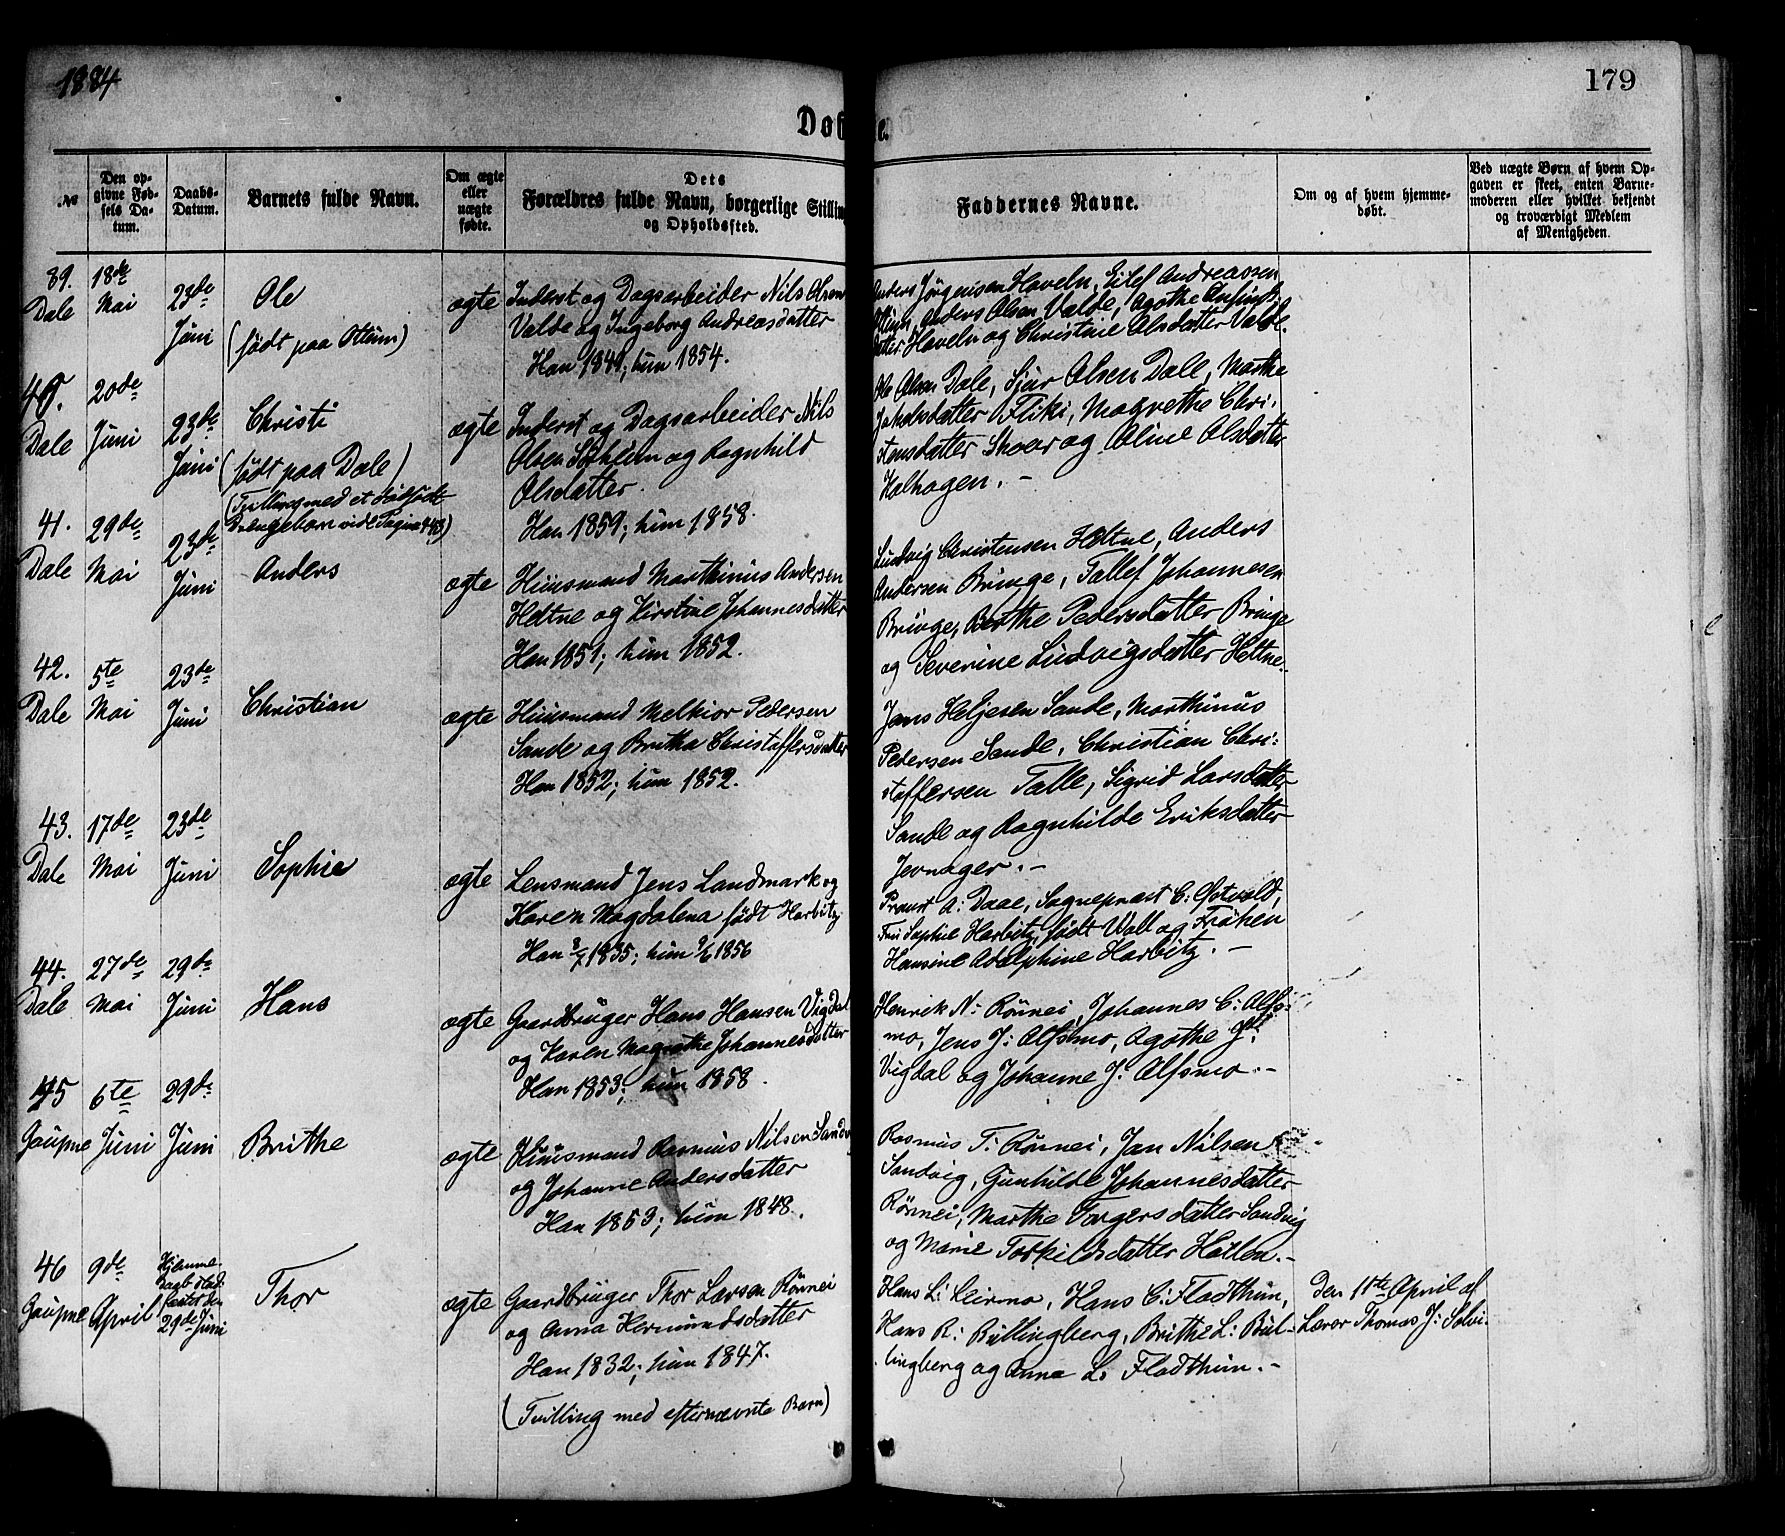 1884
179
Døbte.
№
Den opgivne Fødsels Datum.
Daabs-Datum.
Barnets fulde Navn.
Om ægte eller uægte fødte.
Dets Forældres fulde Navn, borgerlige Stilling og Opholdssted.
Faddernes Navne.
Om og af hvem hjemmedøbt.
Ved uægte Børn af hvem Opgaven er skeet, enten Barnemoderen eller hvilket bekjendt og troværdigt Medlem af Menigheden.
39. Dale
18de Mai
23de Juni
Ole
(født paa Ottum)
ægte
Inderst og Dagsarbeider Nils Olsen
Valde og Ingeborg Andreasdatter
Han 1841; hun 1854.
Anders Jørgensen Haveln, Eilef Andreassen
Ottum, Anders Olsen Valde, Agathe
datter Haveln og Christine Olsdatter Valde.
40. Dale
20de Juni
23de Juni
Christi
(født paa Dale)
(Tvilling med et dødfødt
Drengebarn vide Pagina 443)
ægte
Inderst og Dagsarbeider Nils
Olsen Sørheim og Ragnhild
Olsdatter.
Han 1859; hun 1858.
Ole Olsen Dale, Sjur Olsen Dale, Marthe
Jakobsdatter Fliki, Magrethe Chri-
stensdatter Skoar og Oline Olsdatter
Kalhagen. -
41. Dale
29de Mai
23de Juni
Anders
ægte
Huusmand Marthinus Andersen
Heltne og Kirstine Johannesdatter
Han 1851; hun 1852.
Ludvig Christensen Heltne, Anders
Andersen Bringe, Tallef Johannesen
Bringe, Berthe Pedersdatter Bringe
og Severine Ludvigsdatter Heltne.
42. Dale
5te Mai
23de Juni
Christian
ægte
Huusmand Melkior Pedersen
Sande og Britha Christaffersdatter
Han 1852; hun 1852.
Jans Heljesen Sande, Marthinus
Pedersen Sande, Christian Chri-
staffersen Talle, Sigrid Larsdatter
Sande og Ragnhilde Eriksdatter
Jevnager. -
43. Dale
17de Mai
23de Juni
Sophie
ægte
Lensmand Jens Landmark og
Karen Magdalena født Harbitz
Han 3/7 1835; hun 9/6 1856
Provst A: Daae, Sogneprest C: Østvold,
Fru Sophie Harbitz, født Wall og Frøken
Hansine Adolphine Harbitz. -
44. Dale
27de Mai
29de Juni
Hans
ægte
Gaardbruger Hans Hansen Vigdal
og Karen Magrethe Johannesdatter
Han 1853; hun 1858.
Henrik N: Rønnei, Johannes C: Alfs-
mo, Jens J: Alfsmo, Agathe J:
Vigdal og Johanne J. Alfsmo. -
45 Gaupne
6te Juni
29de Juni
Brithe
ægte
Huusmand Rasmus Nilsen Sandv
og Johanne Andersdatter
Han 1853; hun 1848.
Rasmus T: Rønnei, Jan Nilsen
Sandvig, Gunhilde Johannesdatter
Rønnei, Marthe Torgersdatter Sandvig
og Marie Torkildsdatter Høilen. -
46 Gaupne
9de April
Hjemme-
daab stad-
fæstet den
29de Juni
Thor
ægte
Gaardbruger Thor Larsen Rønnei
og Anna Hermundsdatter
Han 1832; hun 1847.
(Tvilling med efternævnte Barn)
Hans L: Leirmo, Hans C: Fladthun,
Hans R: Bullingberg, Brithe L: Bul-
lingberg og Anna L: Fladthun. -
Den 11te April af
Lærer Thomas J: Solvi.